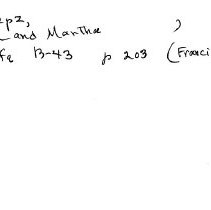 and Martha )
B-43 p 203 (Franci